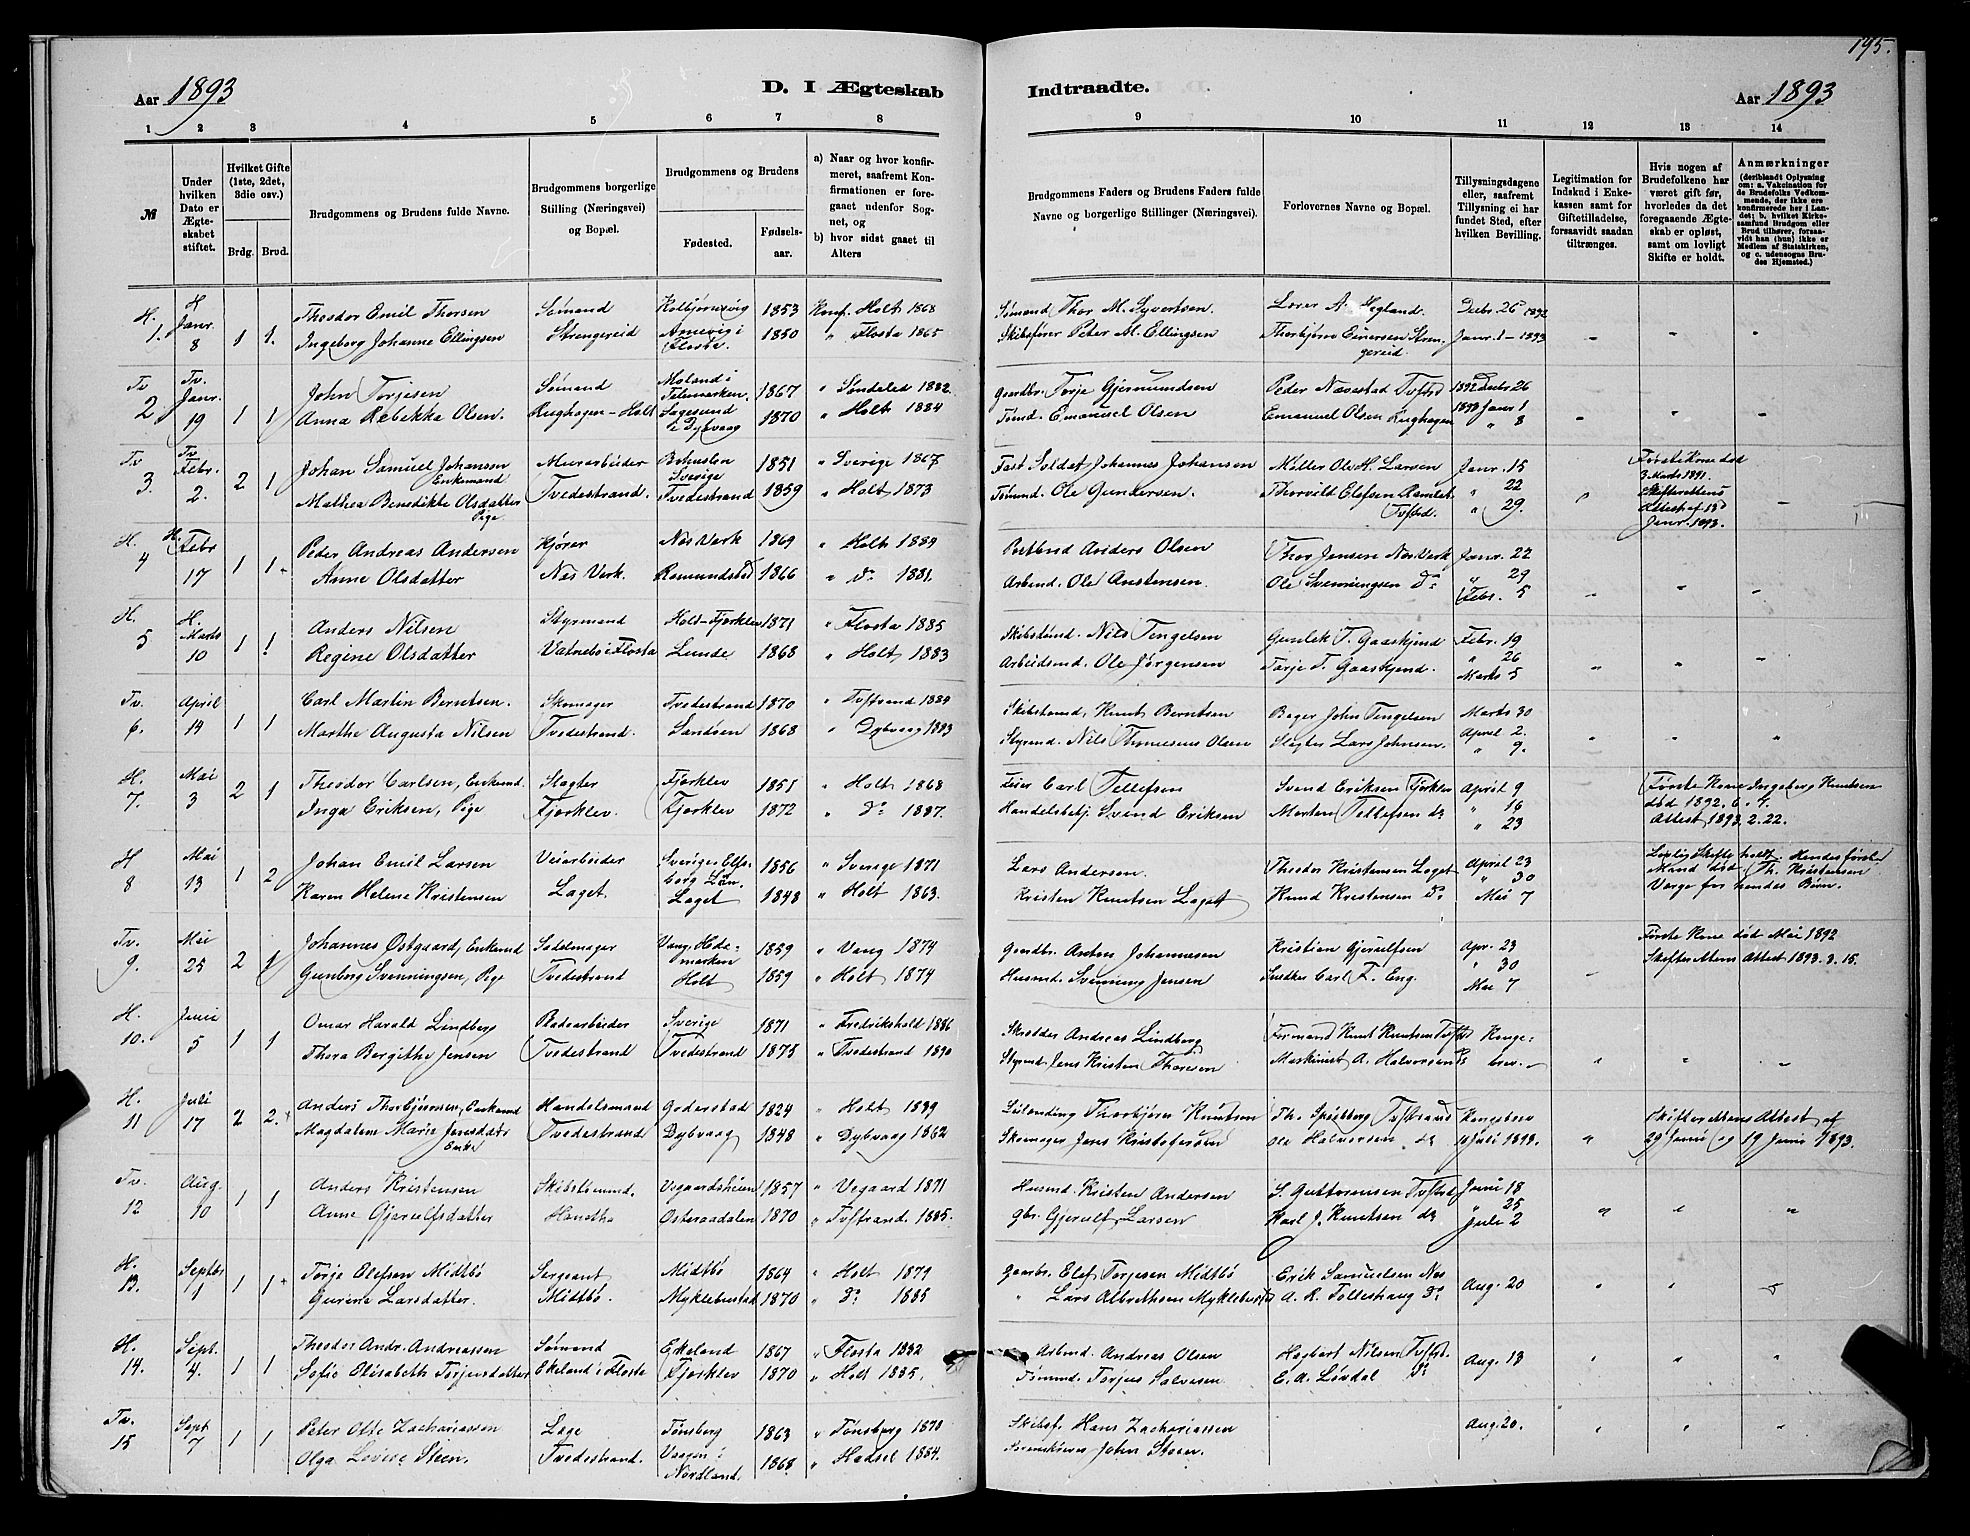 195.
Aar 1893
D. I Ægteskab
Indtraadte.
Aar 1893
1 2 3 4 5 6 7 8 9 10 11 12 13 14
№
Under hvilken Dato er Ægteskabet stiftet.
Hvilket Gifte (1ste, 2det, 3die osv.)
Brdg. Brud.
Brudgommens og Brudens fulde Navne.
Brudgommens borgerlige Stilling (Næringsvei) og Bopæl.
Brudgommens og Brudens
Fødested.
Fødselsaar.
a) Naar og hvor konfirmeret, saafremt Konfirmationen er foregaaet udenfor Sognet, og
b) hvor sidst gaaet til Alters
Brudgommens Faders og Brudens Faders fulde Navne og borgerlige Stillinger (Næringsvei).
Forlovernes Navne og Bopæl.
Tillysningsdagene eller, saafremt Tillysning ei har fundet Sted, efter hvilken Bevilling.
Legitimation for Indskud i Enkekassen samt for Giftetilladelse, forsaavidt saadan tiltrænges.
Hvis nogen af Brudefolkene har været gift før, hvorledes da det foregaaende Ægteskab er opløst, samt om lovligt Skifte er holdt.
Anmærkninger (deriblandt Oplysning om: a. Vakcination for de Brudefolks Vedkommende, der ikke ere konfirmerede her i Landet; b. hvilket Kirkesamfund Brudgom eller Brud tilhører, forsaavidt han (hun) ikke er Medlem af Statskirken, og c. udensogns Brudes Hjemsted.)
H. 1. H Janr 8 1 1. Theodor Emil Thorsen Sømand Kolbjørnsvig 1853 Konf. Holt 1868 Sømand Thor M. Syvertsen. Lorer A. Hegland. Decbr 26 1892
Ingeborg Johanne Ellingsen Strengereid Arnevig i Flosta 1850 " Flosta 1865 Skibsfører Peter M. Ellingsen Thorbjørn Einersen Strengereid. Janr. 1 - 1893
Tv 2 Tv. Janr. 19 1 1 John Torjesen Sømand Moland i Telemarken. 1867 " Søndeled 1882. Gaardbr. Torje Gjermundsen Peder Næsestad Tvstrd 1892 Decbr 26
Anna Rebekka Olsen. Rughagen - Holt Sagesund i Dybvaag 1870 " Holt 1884 Tømd. Emanuel Olsen Emanuel Olsen Rughagen 1893 Janr 1 " 8
Tv 3. Tv Febr. 2. 2 1 Johan Samuel Johansen Enkemand Murarbeider Bohuslen Sverige 1851 " Sverige 1867 Fast Soldat Johannes Johansen Møller Ole H. Larsen Janr. 15 Første Kone død 3 Marts 1891.
Mathea Benedikte Olsdatter Pige Tvedestrand. Tvedestrand 1859 " Holt 1873 Tømmd. Ole Gundersen. Thorvild Olefsen Ramlet Tvstrd. " 22 " 29. Skifterettens Attest af 13 Janr. 1893.
H. 4 H. Febr 17 1 1 Peder Andreas Andersen Kjører Nes Verk 1869 " Holt 1884 Postbud Anders Olsen Thor Jensen Nes Verk Janr. 22
Anne Olsdatter Nes Verk. Romundstad 1866 " Do 1881. Arbmd. Ole Anstensen. Ole Svenningsen Do " 29 Febr. 5
H. 5 H. Marts 10 1 1 Anders Nilsen Styrmand Holt - Fjorklev 1871 " Flosta 1885 Skibstømd. Nils Tengelsen Gunlek T. Gaaskjend Febr. 19
Regine Olsdatter Vatnebo i Flosta Lunde 1868 " Holt 1883 Arbeidsmd. Ole Jørgensen Torje T. Gaaskjend. " 26 Marts 5
Tv. 6. April 14 1 1 Carl Martin Berntsen. Skomager Tvedestrand 1870 " Tvstrand 1884 Skibstømd. Knut Berntsen Bager John Tengelsen Marts 30
Marthe Augusta Nilsen Tvedestrand. Sandøen 1868 " Dybvaag 1883 Styrmd. Nils Thomesens Olsen Slagter Lars Johnsen. April 2. " 9.
H. 7. Mai 3 2 1 Theodor Carlsen, Enkemd. Slagter Fjorklev 1851 " Holt 1868 Feier Carl Tellefsen Svend Eriksen Fjorklev April 9 Første Kone Ingeborg Knudsen
Inga Eriksen, Pige Fjorklev. Fjorklev 1872 " Do 1887. Handelsbetj. Svend Eriksen Morten Tellefsen do " 16 " 23 død 1892. 6. 4. Attest 1893. 2. 22.
H 8 Mai 13 1 2 Johan Emil Larsen Veiarbeider Sverige Elfsborg Län. 1856 " Sverige 1871 Lars Andersen. Theodor Kristensen Laget April 23 Lovlig Skifte holdt. Hendes første
Karen Helene Kristensen Laget. Laget 1848 " Holt 1863. Kristen Knutsen Laget Knud Kristensen Do " 30 Mai 7 Mand død (Th. Kristensen Værge for hendes Børn.
Tv. 9. Mai 25 2 1 Johannes Østgaard, Enkemd Sadelmager Vang Hedemarken 1859 " Vang 1874 Gaardbr. Anton Johannesen Kristian Gjerulfsen Apr. 23 Første Kone død Mai 1892
Gunborg Svenningsen, Pige Tvedestrand Holt 1859 " Holt 1874 Husmd. Svenning Jensen Snedker Carl F. Eng. " 30 Mai 7 Skifterettens Attest 1893. 3. 15.
H. 10. Juni 5 1 1 Omar Harald Lindberg Badearbeider Sverige 1871 " Fredrikshald 1886 Skrædder Andreas Lindberg Formand Knut Knutsen Tvstrd Konge-
Thora Bergithe Jensen Tvedestrand Tvedestrand 1875 " Tvedestrand 1890 Styrmd. Jens Kristen Thoresen Maskinist A. Halvorsen Do brev.
H. 11 Juli 17 2 2. Anders Thorbjørnsen, Enkemd Handelsmand Goderstad 1824 " Holt 1839 Thorbjørn Knutsen Th. Spødberg Tvstrand Kongebrev Skifterettens Attest af
Magdalene Marie Jensdatr Enke Tvedestrand Dybvaag 1848 " Dybvaag 1862 Skomager Jens Kristofersen Ole Halvorsen do Juli 1893. 29 Juni og 19 Juni 1893.
Tv. 12 Aug. 10 1 1 Anders Kristensen Skibstømmd. Vegaardsheien 1857 " Vegaard 1871 Husmd. Kristen Andersen S. Guttormsen Tvstrd Juni 18
Anne Gjerulfsdatter Hantho Osteraadalen 1870 " Tvstrand. 1885. Gbr. Gjerulf Larsen Karl J. Knutsen do " 25 Juli 2
H. 13. Septbr 1 1 1 Torje Olefsen Midtbø Sergeant Midtbø 1864 " Holt 1879 Gaardbr. Olef Torjesen Midtbø Erik Samuelsen Nes Aug. 20
Gurine Larsdatter. Midtbø. Myklebustad 1870 " Do 1885 " Lars Albrethsen Myklebustad A. R. Tolleshaug Do
H. 14. Sept. 4. 1 1 Theodor Andr. Andreassen Sømand Ekeland 1867 " Flosta 1882 Arbmd. Andreas Olsen Hagbart Nilsen Tvstd. Aug. 13
Sofie Elisabeth Torjusdatter Ekeland i Flosta Fjorklev 1870 " Holt 1885. Tømmd. Torjus Salvesen. E. A. Løvdal Do
Tv. 15 Sept 7 1 1 Peter Otto Zachariassen Læge Tønsberg 1863 " Tønsberg 1878 Skibsf. Hans Zachariassen Aug. 20.
Olga Lovise Steen. Tvedestrand. Vaagen i Nordland. 1868 " Hadsel 1884. John Steen.